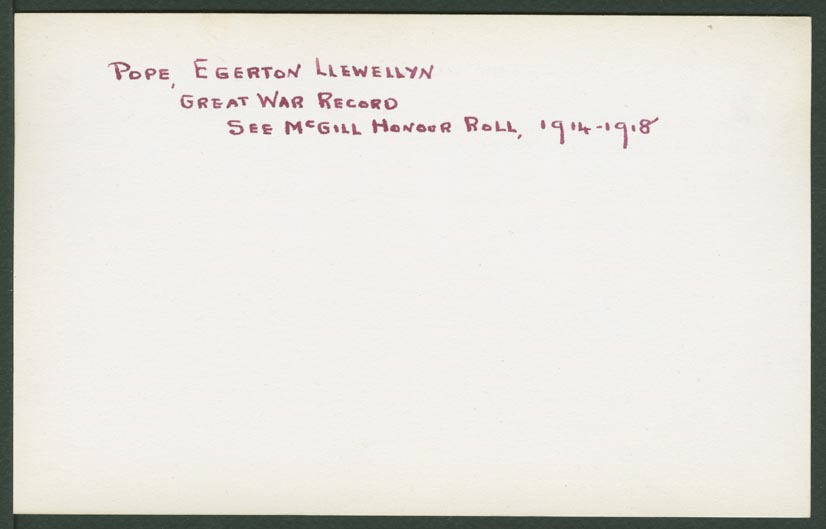 Pope, Egerton Llewellyn
Great War Record
See McGill Honour Roll, 1914-1918